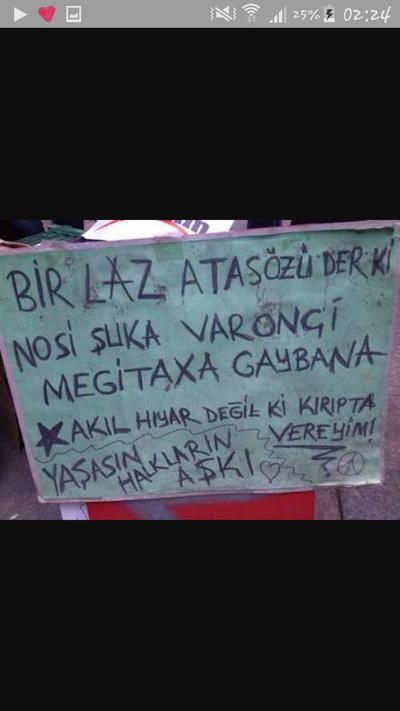 25% 02:24
BİR LAZ ATASÖZÜ DER Kİ
NOSİ ŞUKA VARONGİ
MEGİTAXA GAYBANA
AKIL HIYAR DEĞİL Kİ KIRIPTA
VEREYİM!
YAŞASIN
HALKLARIN
AŞKI